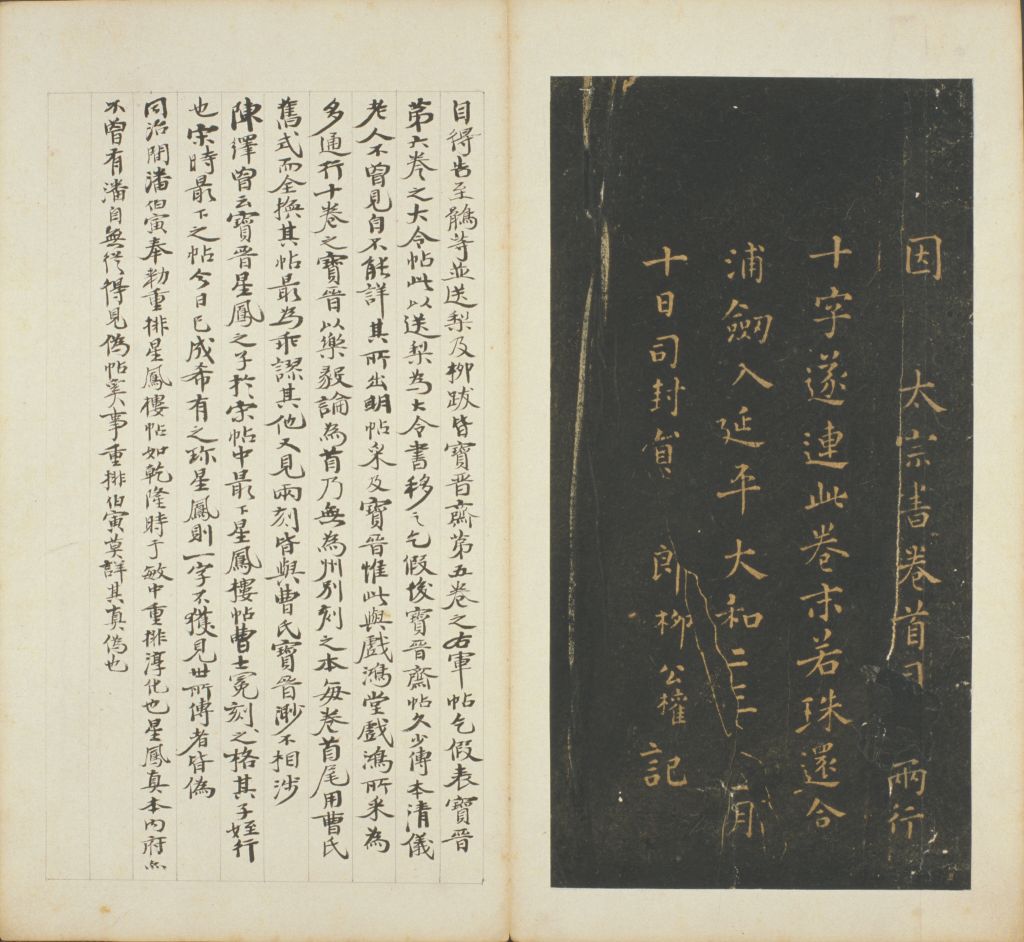 因太宗書卷首
兩行
十字遂連此卷末若珠還合
浦劒入延平大和二年
月
十日司封員郎柳公權記
目得告至鵝等並送梨及柳跋皆寶晉齋第五卷之右軍帖乞假表寶晉
第六卷之大令帖此以送梨為大令書移之乞假後寶晉齋帖久少傳本清儀
老人不曾見自不能詳其所出明帖采及寶晉惟此與戲鴻堂戲鴻所采為
多通行十卷之寶晉以樂毅論為首乃無為州別刻之本每卷首尾用曹氏
舊式而全換其帖最為乖謬其他又見兩刻皆與曹氏寶晉渺不相涉
陳繹曾云寶晉星鳳之子於宋帖中最下星鳳樓帖曹士冕刻之格其子姪行
也宋時最下之帖今日已成希有之珍星鳳則一字不獲見世所傳者皆偽
同治間潘伯寅奉勅重排星鳳樓帖如乾隆時于敏中重排淳化也星鳳真本內府亦
不曾有潘自無從得見偽帖奚事重排伯寅莫詳其真偽也